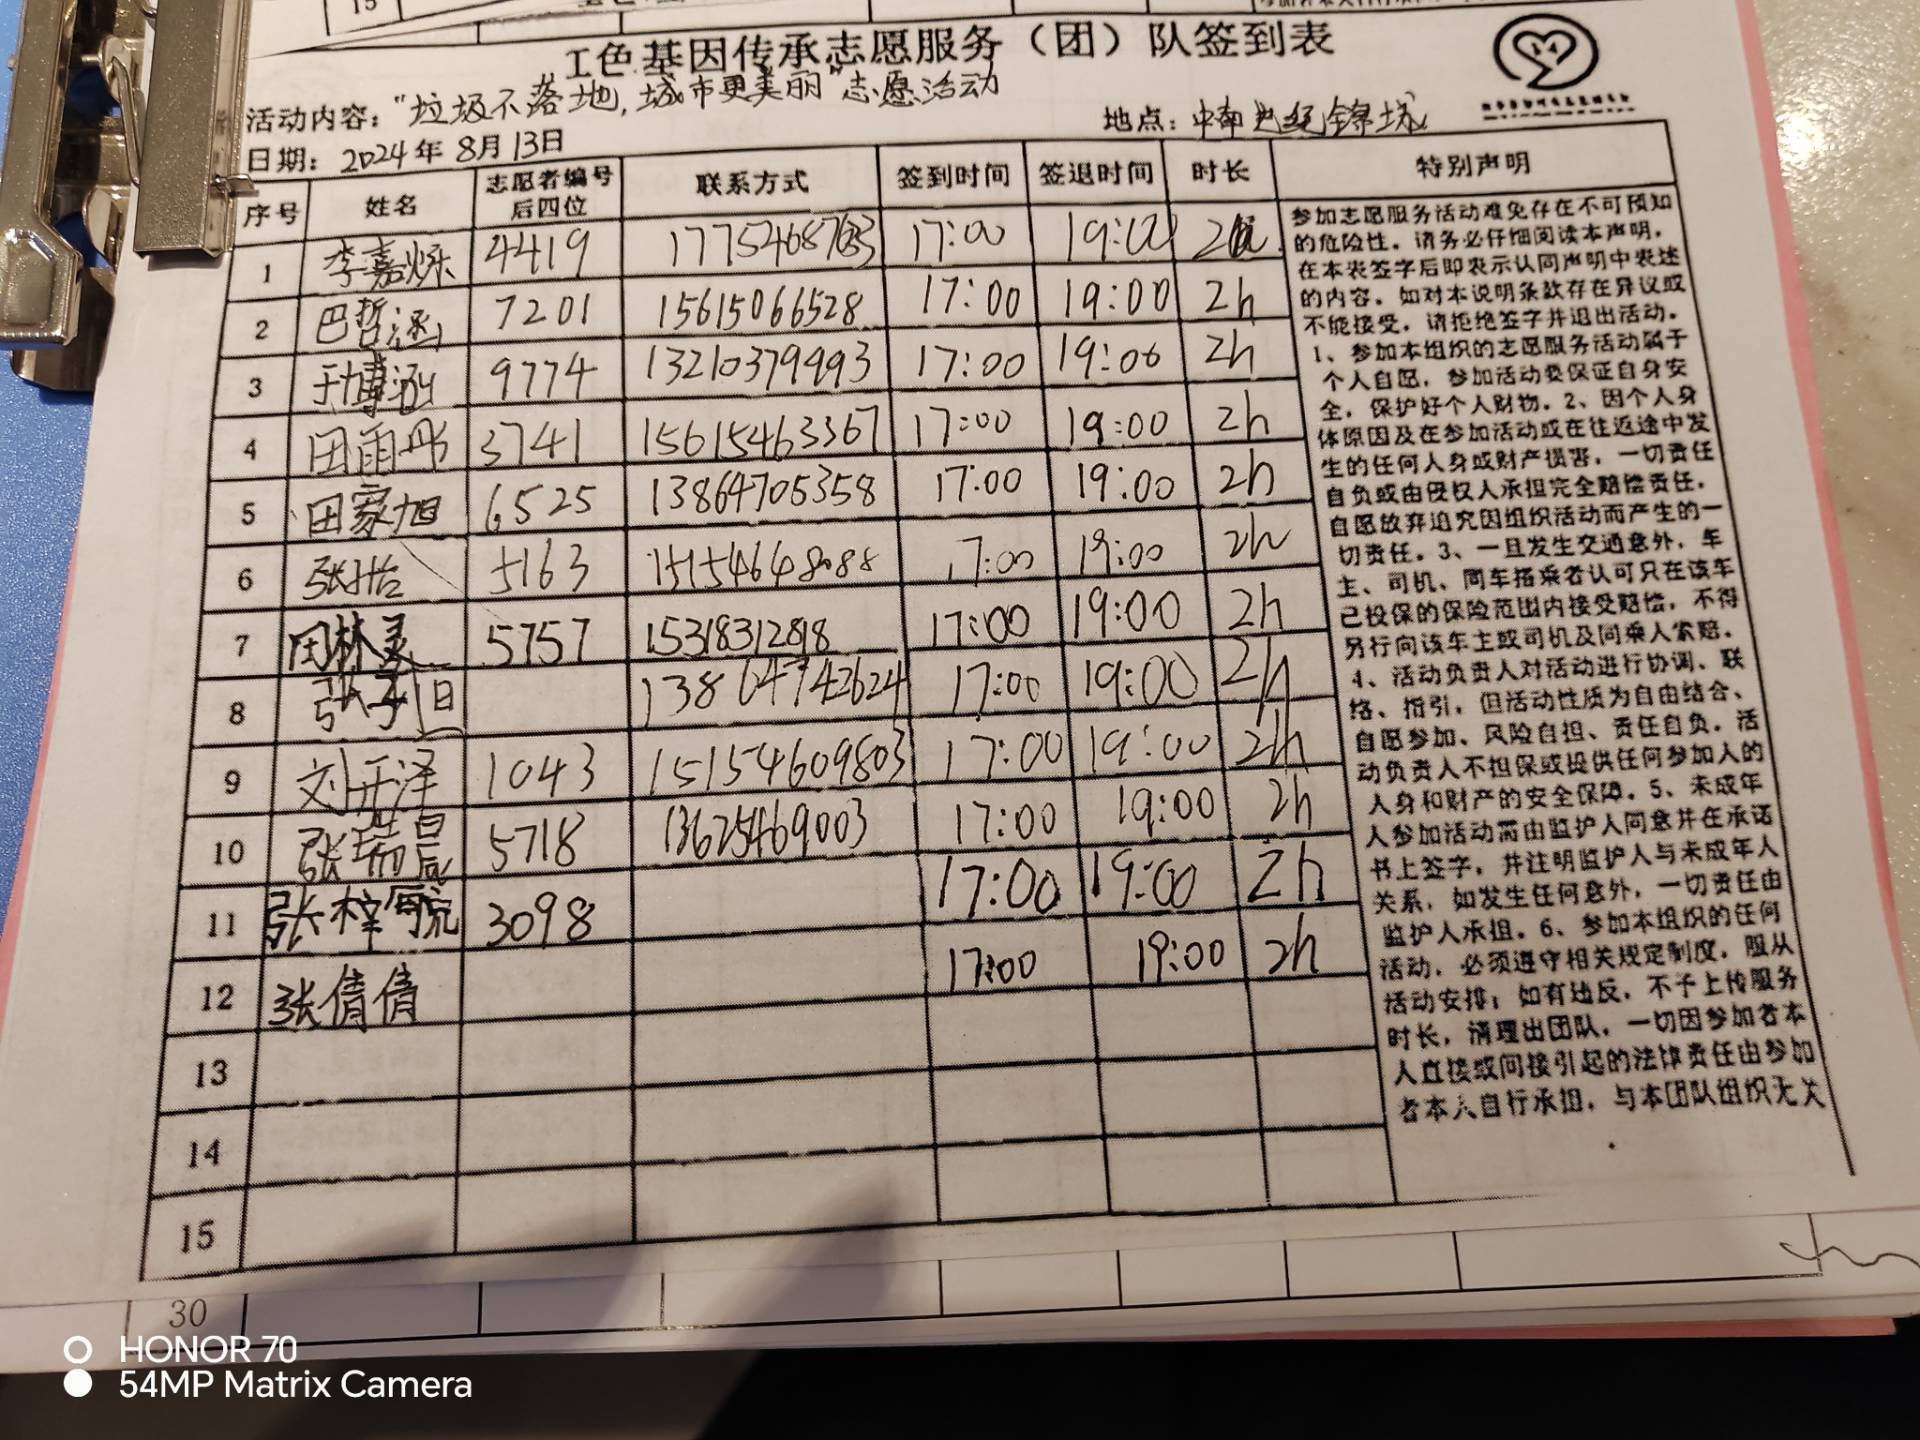 15
工色基因传承志愿服务（团）队签到表
活动内容："垃圾不落地,城市更美丽"志愿活动
地点：中南世纪锦城
日期：2024年8月13日
序号 姓名 志愿者编号后四位 联系方式 签到时间 签退时间 时长 特别声明
1 李嘉烁 4419 17:00 19:00
2 巴哲涵 7201 15615066528 17:00 19:00 2h
3 于博涵 9774 13210379993 17:00 19:00 2h
4 田雨彤 3741 15615463367 17:00 19:00 2h
5 田家旭 6525 13864705358 17:00 19:00 2h
6 张怡 5163 15154648088 17:00 19:00 2h
7 田林灵 5757 15318312818 17:00 19:00 2h
8 张子恒 13864742624 17:00 19:00 2h
9 刘开泽 1043 151154609803 17:00 19:00 2h
10 张瑞晨 5718 13625469003 17:00 19:00 2h
11 张梓 3098 17:00 19:00 2h
12 张倩倩 17:00 19:00 2h
13
14
15
参加志愿服务活动难免存在不可预知
的危险性。请务必仔细阅读本声明，
在本表签字后即表示认同声明中表述
的内容。如对本说明条款存在异议或
不能接受，请拒绝签字并退出活动。
1、参加本组织的志愿服务活动属于
个人自愿，参加活动要保证自身安
全，保护好个人财物。2、因个人身
体原因及在参加活动或在往返途中发
生的任何人身或财产损害，一切责任
自负或由侵权人承担完全赔偿责任，
自愿放弃追究因组织活动而产生的一
切责任。3、一旦发生交通意外，车
主、司机、同车搭乘者认可只在该车
已投保的保险范围内接受赔偿，不得
另行向该车主或司机及同乘人索赔。
4、活动负责人对活动进行协调、联
络、指引，但活动性质为自由结合、
自愿参加、风险自担、责任自负，活
动负责人不担保或提供任何参加人的
人身和财产的安全保障。5、未成年
人参加活动需由监护人同意并在承诺
书上签字，并注明监护人与未成年人
关系，如发生任何意外，一切责任由
监护人承担。6、参加本组织的任何
活动，必须遵守相关规定制度，服从
活动安排；如有违反，不予上传服务
时长，清理出团队，一切因参加者本
人直接或间接引起的法律责任由参加
者本人自行承担，与本团队组织无关
30
HONOR 70
54MP Matrix Camera